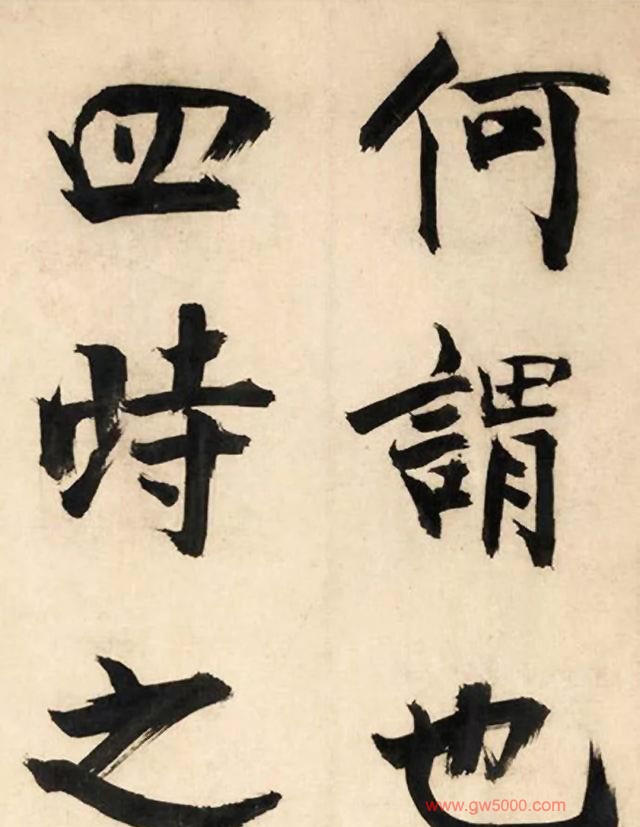 何謂也
四時之
www.gw5000.com